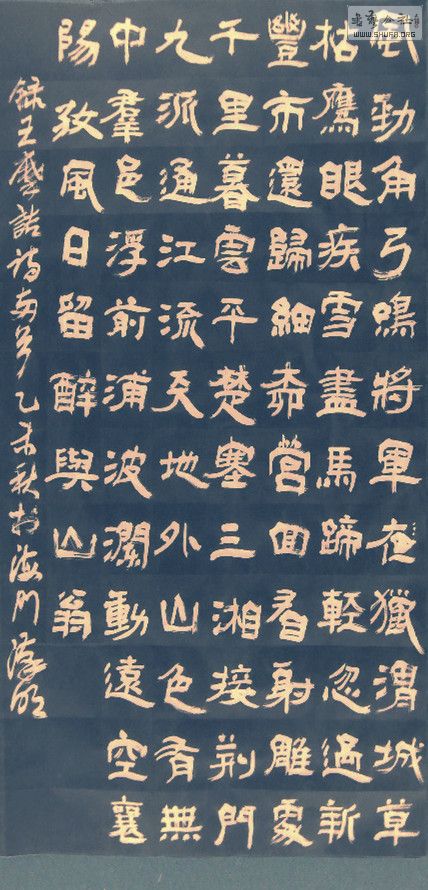 WWW.SHUFA.ORG
風勁角弓鳴將軍夜獵渭城草
枯鷹眼疾雪盡馬蹄輕忽過新
豐市還歸細柳營回看射雕處
千里暮雲平楚塞三湘接荊門
九派通江流天地外山色有無
中羣邑浮前浦波瀾動遠空襄
陽風日留醉與山翁
錄王摩詰詩兩首乙未秋於海門